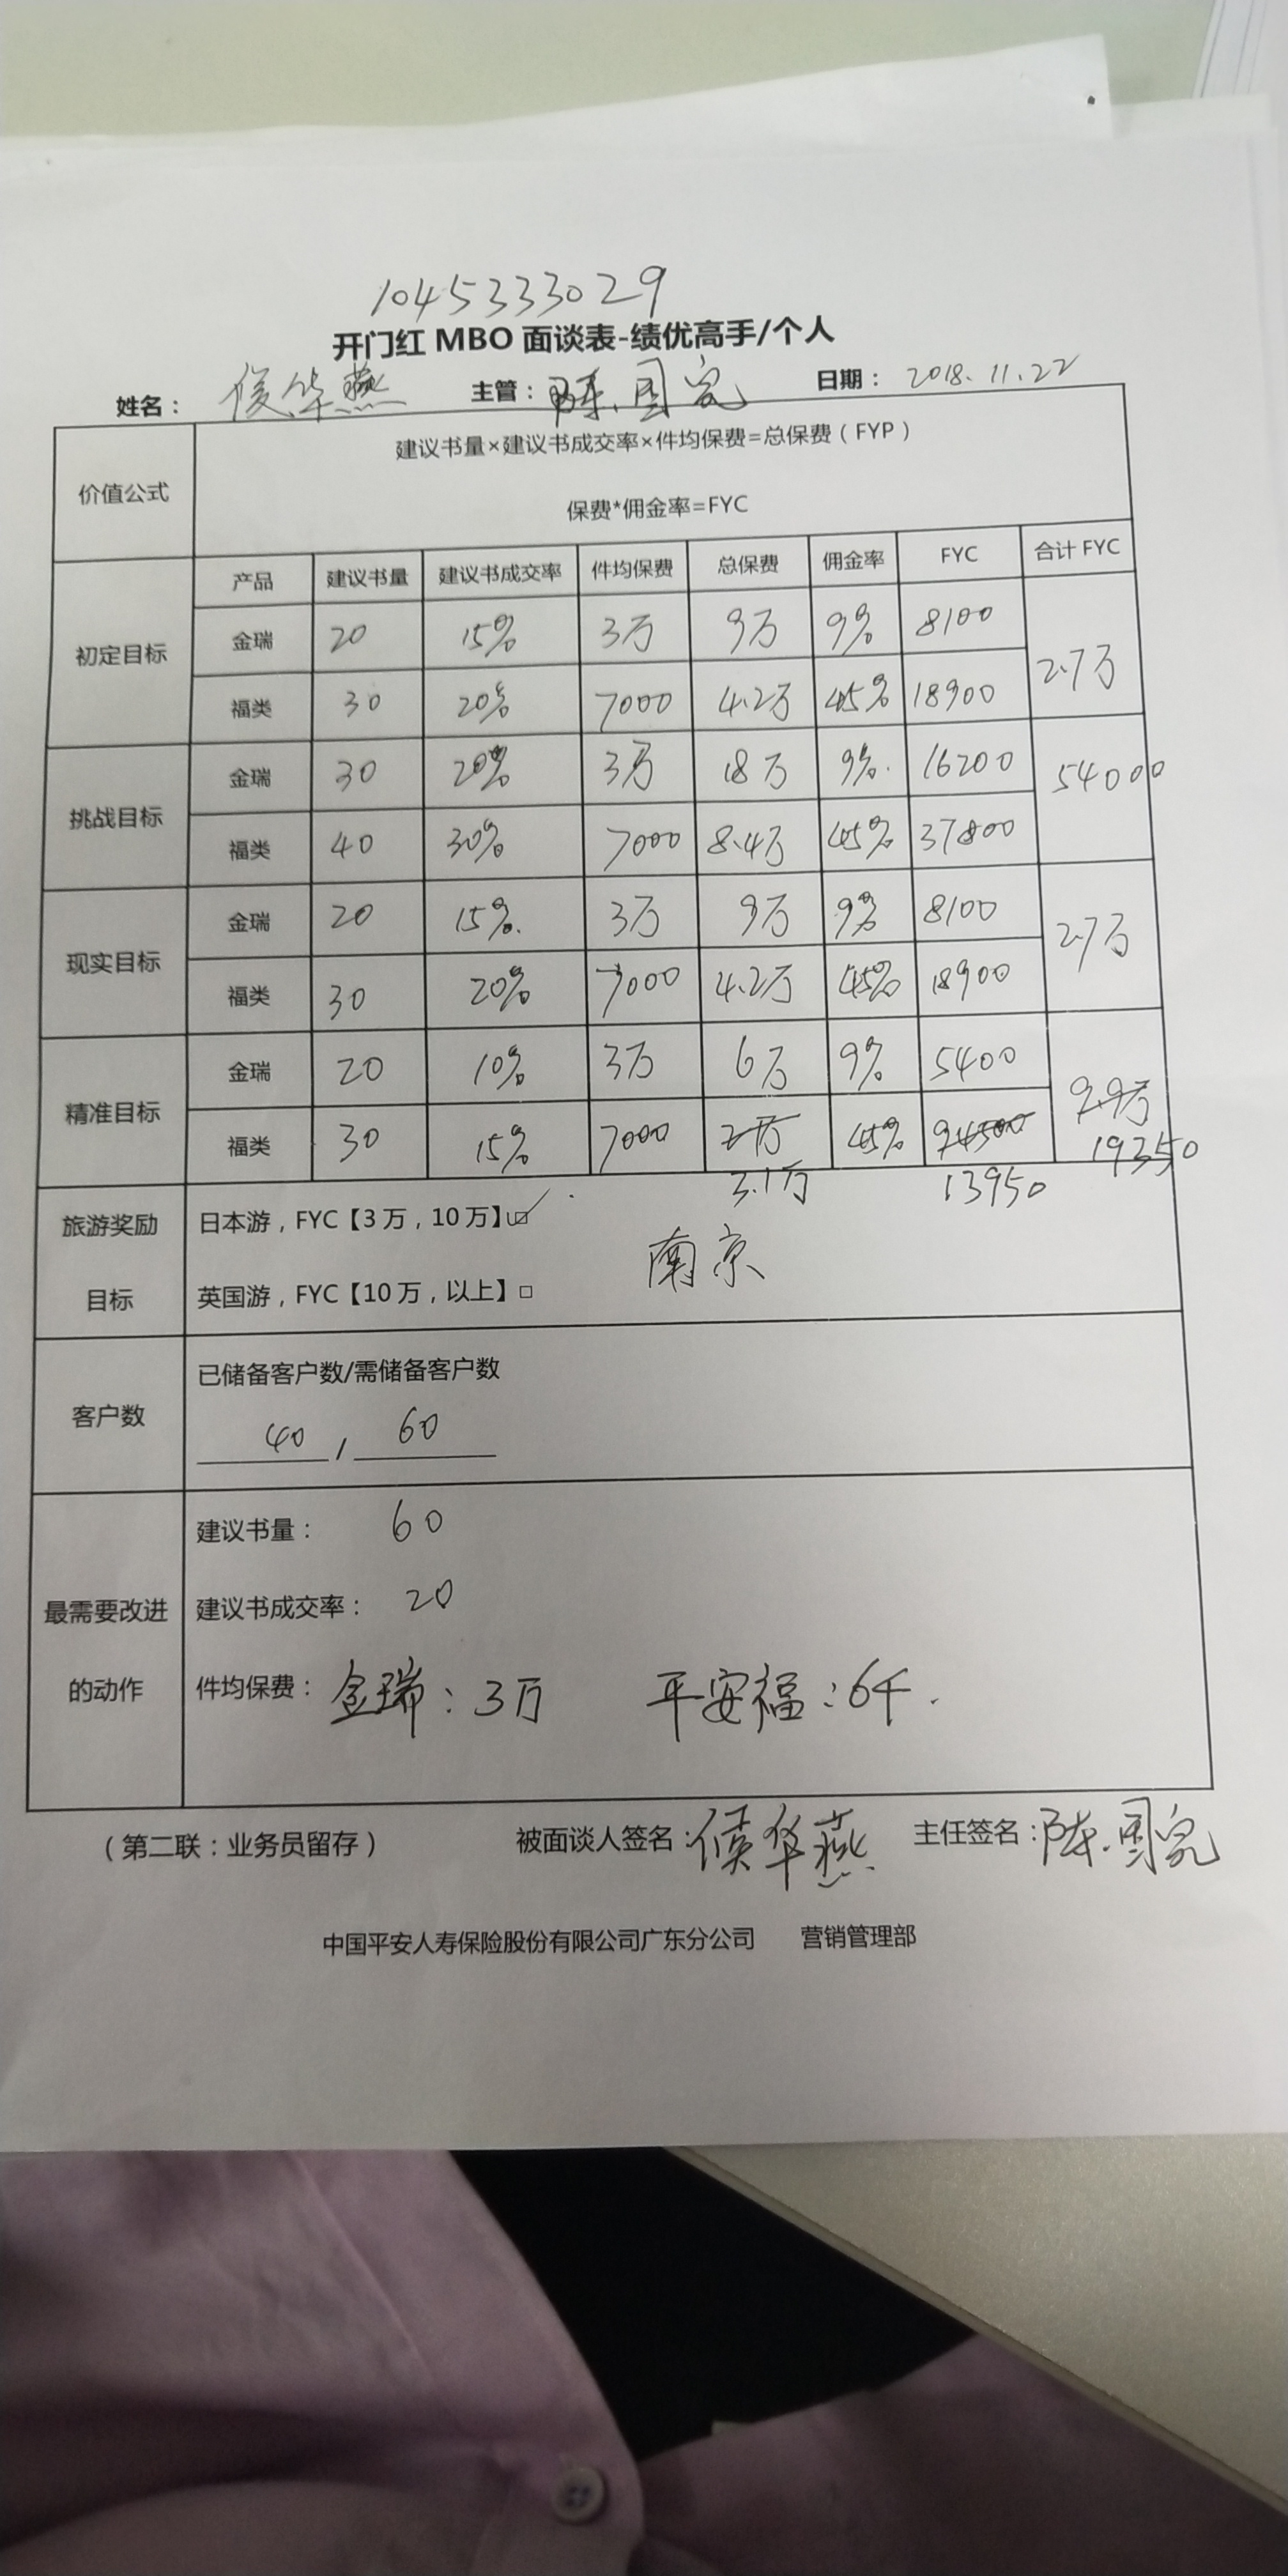 1045333029
开门红 MBO 面谈表-绩优高手/个人
姓名： 侯华燕 主管：陈国宪 日期： 2018.11.22
价值公式
建议书量×建议书成交率×件均保费=总保费（FYP）
保费*佣金率=FYC
产品 建议书量 建议书成交率 件均保费 总保费 佣金率 FYC 合计 FYC
初定目标
金瑞 20 15% 3万 9万 9% 8100
2.7万
福类 30 20% 7000 4.2万 45% 18900
挑战目标
金瑞 30 20% 3万 18万 9% 16200
54000
福类 40 30% 7000 8.4万 45% 37800
现实目标
金瑞 20 15% 3万 9万 9% 8100
2.7万
福类 30 20% 7000 4.2万 45% 18900
精准目标
金瑞 20 10% 3万 6万 9% 5400
福类 30 15% 7000 45%
19350
3.1万 13950
旅游奖励
目标
日本游，FYC【3 万，10 万】☑
南京
英国游，FYC【10 万，以上】□
客户数
已储备客户数/需储备客户数
40 / 60
最需要改进
的动作
建议书量： 60
建议书成交率： 20
件均保费： 金瑞：3万 平安福：6千.
（第二联：业务员留存） 被面谈人签名：侯华燕 主任签名：陈国宪
中国平安人寿保险股份有限公司广东分公司 营销管理部